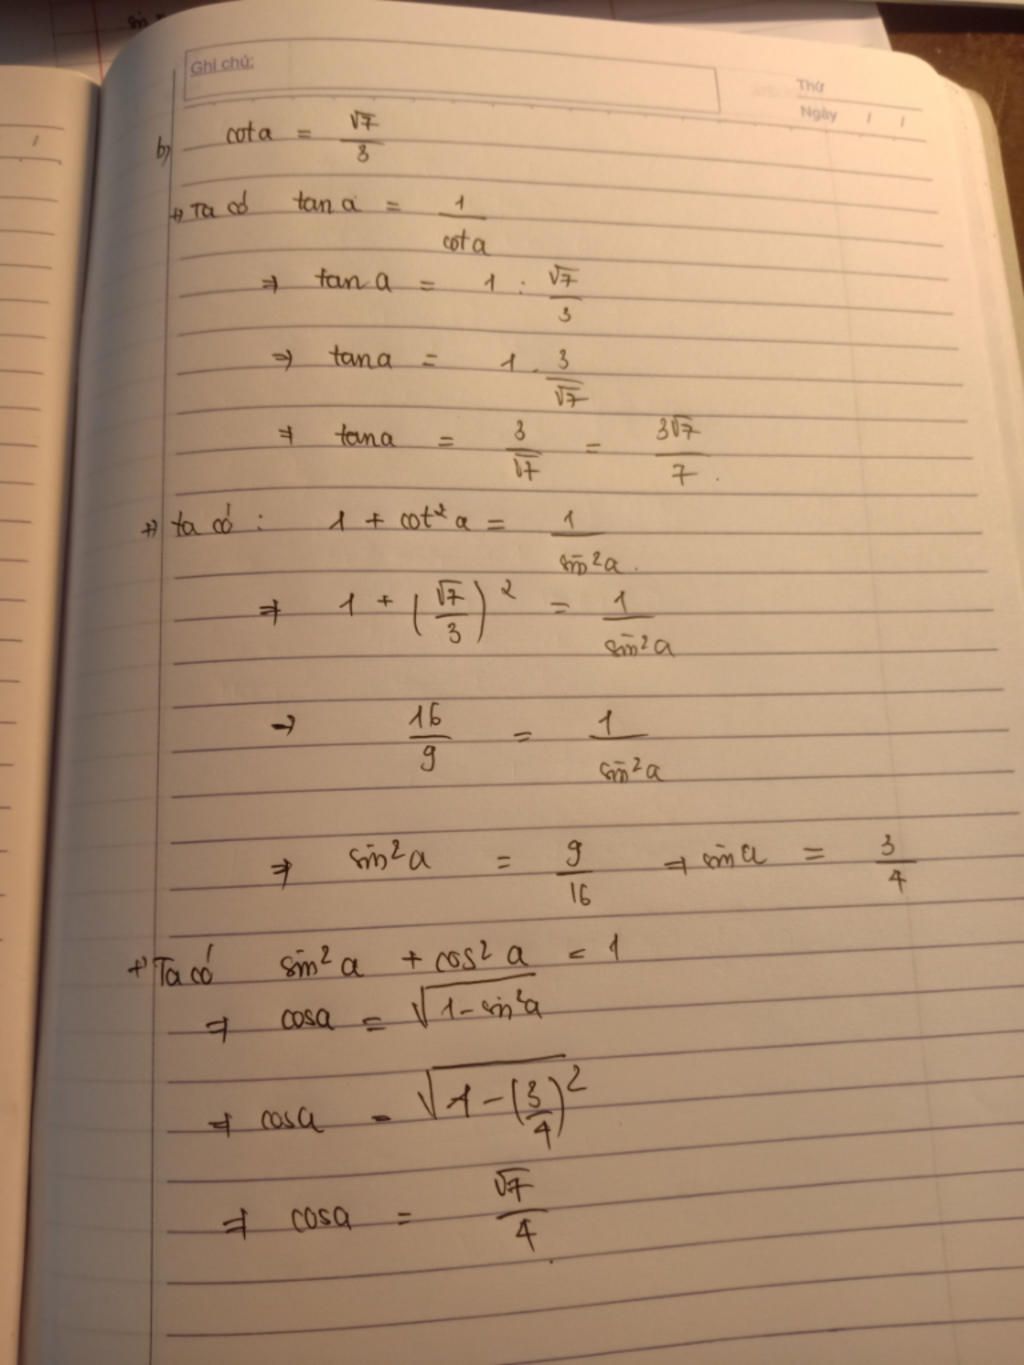 Ghi chú:
Thứ
Ngày / /
b) cota = √7/3
+) Ta có tan a = 1/cota
⇒ tan a = 1 : √7/3
⇒ tana = 1 . 3/√7
⇒ tana = 3/√7 = 3√7/7.
+) ta có : 1 + cot²a = 1/sin²a.
⇒ 1 + (√7/3)² = 1/sin²a
→ 16/9 = 1/sin²a
⇒ sin²a = 9/16 ⇒ sin a = 3/4
+) Ta có sin²a + cos²a = 1
⇒ cosa = √(1 - sin²a)
⇒ cosa = √(1 - (3/4)²)
⇒ cosa = √7/4.